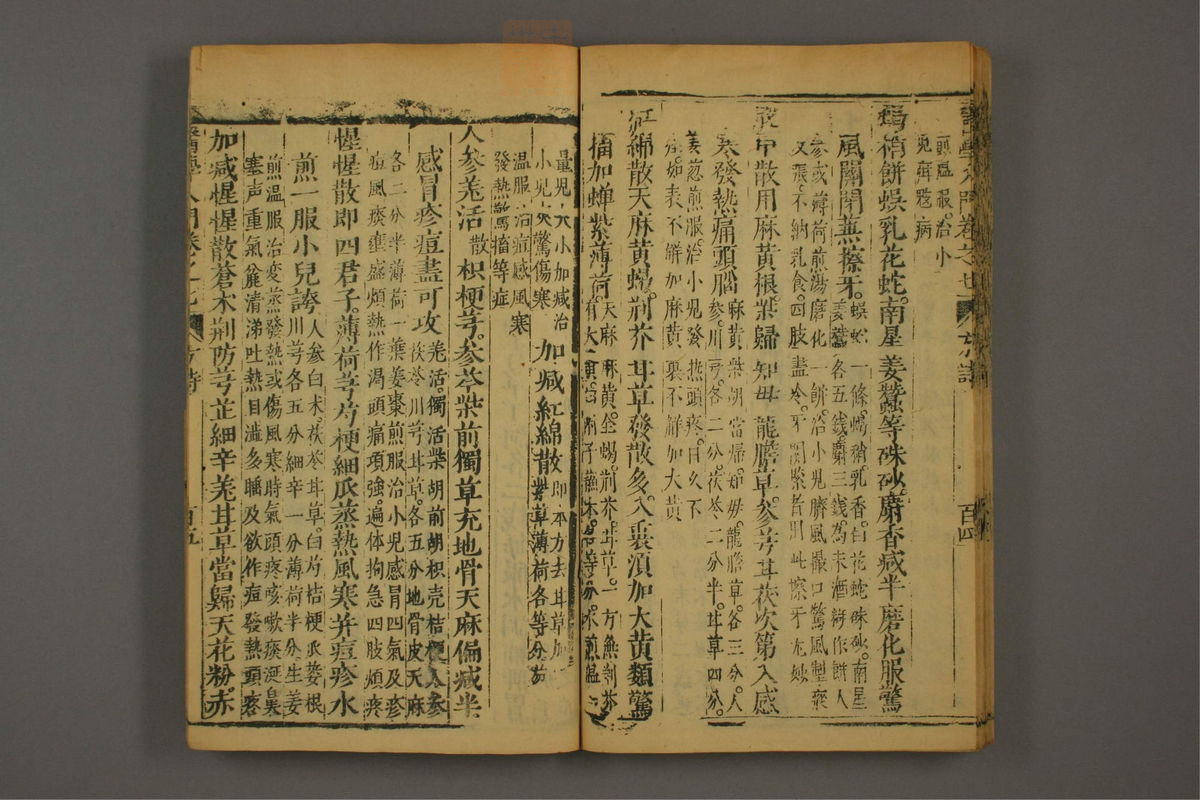 醫學入門卷之七 方詩 百四
煎温服。治小
兒癖尅病
蝎稍餅蜈乳花蛇。南星姜蠶等硃砂。麝香減半磨化服驚
風關閉兼擦牙。蜈蚣一條。蝎稍乳香。白花蛇硃砂。南星
姜蠶各五錢。麝三錢。為末酒糊作餅。人
參或薄荷煎湯磨化一餅。治小兒臍風撮口驚風掣瘲
又張。不納乳食。四肢盡冷。牙關緊者則此擦牙尤妙
散用麻黄根柴歸知母龍膽草。參芎甘茯次第入感
寒發熱痛頭腦麻黄柴胡當歸。知母。龍膽草各三分。人
參。川芎。各二分。茯苓二分半。甘草四分。
姜葱煎服。治小兒發熱頭疼。日久不
痊。如表不解加麻黄裏不解加大黄
紅綿散天麻黄蝎。荆芥甘草發散多。入裏須加大黄類驚
搐加蟬紫薄荷。天麻麻黄。全蝎。荆芥。甘草。一方無荆芥
有大黄。各等分。水煎温
量兒大小加減治
小兒夾驚傷寒
加減紅綿散即本方去甘草加
紫草薄荷各等分煎
温服治痘感風寒
發熱驚搐等症
人參羌活散枳梗芎。參苓柴前獨草充地骨天麻偏減半
感冒疹痘盡可攻羌活。獨活柴胡前胡枳壳桔梗人參
茯苓川芎甘草。各五分地骨皮天麻
各二分半薄荷一葉姜棗煎服治小兒感冒四氣及疹
痘風痰壅盛煩熱作渴頭痛項強。遍体拘急四肢煩疼
惺惺散即四君子。薄荷芎芍梗細瓜蒸熱風寒并痘疹水
煎一服小兒誇人參白术茯苓甘草。白芍桔梗瓜蔞根
川芎各五分細辛一分薄荷半分生姜
煎温服治変蒸發熱或傷風寒時氣頭疼咳嗽痰涎鼻
塞声重氣麄清涕吐熱目澁多睡及欲作痘發熱頭疼
加減惺惺散蒼术荆防芎芷細辛羌甘草當歸天花粉。赤
醫學入門卷之七 方詩 百五